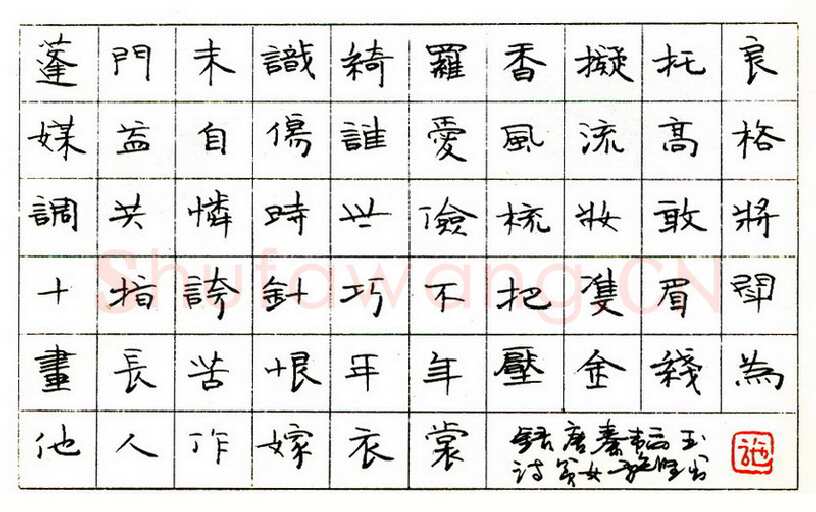 蓬門未識綺羅香擬托良
媒益自傷誰愛風流高格
調共憐時世儉梳妝敢將
十指誇針巧不把隻眉鬥
畫長苦恨年年壓金綫為
他人作嫁衣裳
錄唐秦韜玉
詩貧女
施
Shufawang.CN